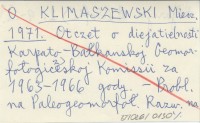 O KLIMASZEWSKI Miecz.
1971. Otczet o diejatielnosti
Karpato-Balkanskoj Geomor-
fołogiczeskoj Komissii za
1963-1966 gody. - Probl.
na Paleogeomorfoł. Razw. na